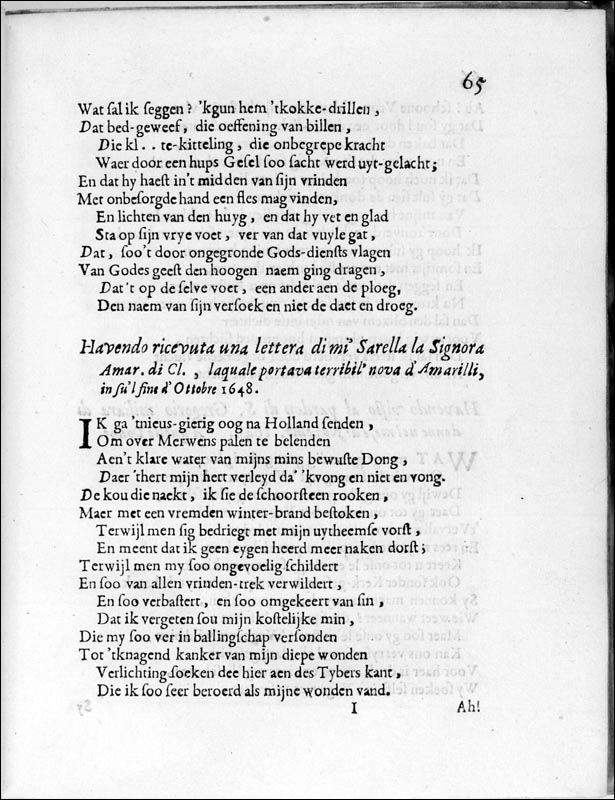 65
Wat ſal ik ſeggen? 'kgun hem 'tkokke-drillen,
Dat bed-geweef, die oeffening van billen,
Die kl.. te-kitteling, die onbegrepe kracht
Waer door een hups Geſel ſoo ſacht werd uyt-gelacht;
En dat hy haeſt in't midden van ſijn vrinden
Met onbeſorgde hand een fles mag vinden,
En lichten van den huyg, en dat hy vet en glad
Sta op ſijn vrye voet, ver van dat vuyle gat,
Dat, ſoo't door ongegronde Gods-dienſts vlagen
Van Godes geeſt den hoogen naem ging dragen,
Dat't op de ſelve voet, een ander aen de ploeg,
Den naem van ſijn verſoek en niet de daet en droeg.
Havendo ricevuta una lettera di mi' Sarella la Signora
Amar. di Cl., laquale portava terribil' nova d' Amarilli,
in ſu'l fine d' Ottobre 1648.
IK ga 'tnieus-gierig oog na Holland ſenden,
Om over Merwens palen te belenden
Aen't klare water van mijns mins bewuſte Dong,
Daer 'thert mijn hert verleyd da' 'kvong en niet en vong.
De kou die naekt, ik ſie de ſchoorſteen rooken,
Maer met een vremden winter-brand beſtoken,
Terwijl men ſig bedriegt met mijn uytheemſe vorſt,
En meent dat ik geen eygen heerd meer naken dorſt;
Terwijl men my ſoo ongevoelig ſchildert
En ſoo van allen vrinden-trek verwildert,
En ſoo verbaſtert, en ſoo omgekeert van ſin,
Dat ik vergeten ſou mijn koſtelijke min,
Die my ſoo ver in ballingſchap verſonden
Tot 'tknagend kanker van mijn diepe wonden
Verlichting ſoeken dee hier aen des Tybers kant,
Die ik ſoo ſeer beroerd als mijne wonden vand.
I Ah!